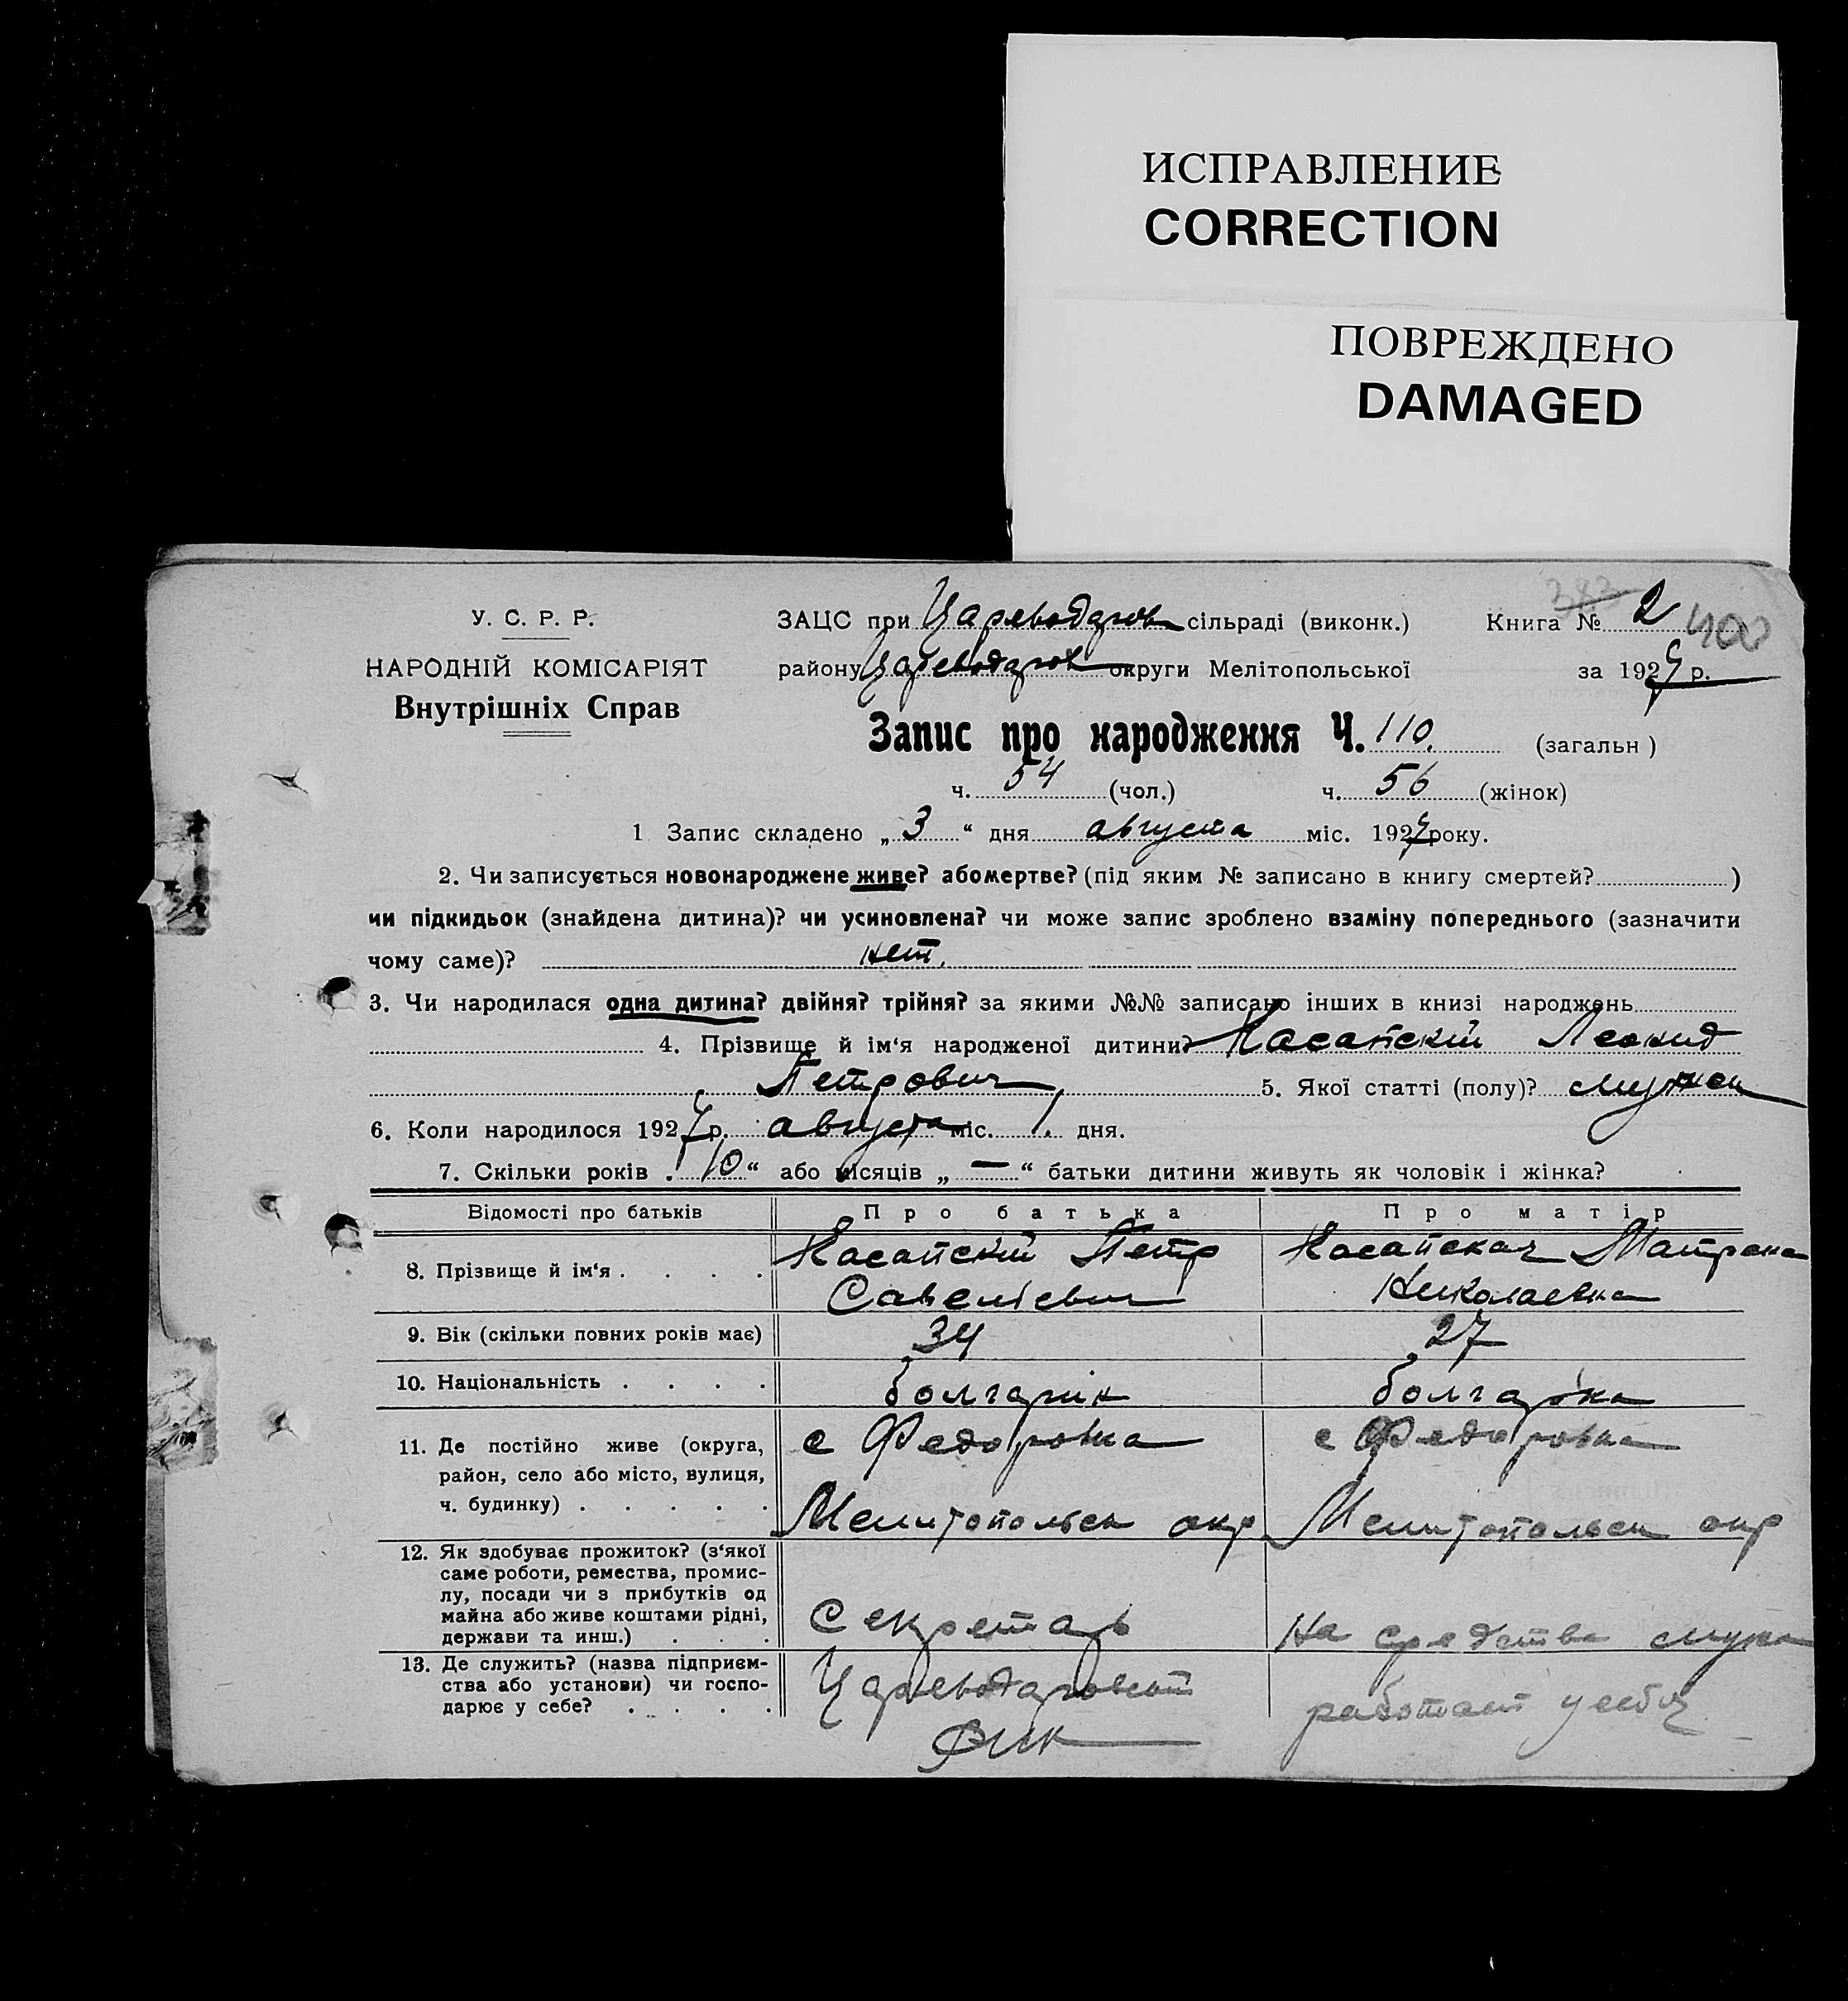 ИСПРАВЛЕНИЕ
CORRECTION
ПОВРЕЖДЕНО
DAMAGED
383
У. С. Р. Р.
ЗАЦС при Цареводаров сільраді (виконк.) Книга № 2 400
НАРОДНІЙ КОМІСАРІЯТ
району Цареводаров округи Мелітопольської за 192 р.
Внутрішніх Справ
Запис про народження Ч. 110. (загальн)
ч. 54 (чол.) ч. 56 (жінок)
1 Запис складено „ 3 “ дня августа міс. 192 року.
2. Чи записується новонароджене живе? або мертве? (під яким № записано в книгу смертей? )
чи підкидьок (знайдена дитина)? чи усиновлена? чи може запис зроблено взаміну попереднього (зазначити
чому саме)? нет.
3. Чи народилася одна дитина? двійня? трійня? за якими №№ записано інших в книзі народжень
4. Прізвище й ім‘я народженої дитини? Касапский Леонид
Петрович 5. Якої статті (полу)? мужск
6. Коли народилося 192 р. августа міс. 1. дня.
7. Скільки років „ 10 “ або місяців „ — “ батьки дитини живуть як чоловік і жінка?
Відомості про батьків Про батька Про матір
8. Прізвище й ім‘я . . . . Касапский Петр Касапская Матрена
Савелиевич Николаевна
9. Вік (скільки повних років має) 34 27
10. Національність . . . . болгарин болгарка
11. Де постійно живе (округа, с Федоровка с Федоровка
район, село або місто, вулиця,
ч. будинку) . . . . . Мелитопольск окр Мелитопольск окр
12. Як здобуває прожиток? (з‘якої
саме роботи, ремества, промис-
лу, посади чи з прибутків од
майна або живе коштами рідні, Секретарь На средства мужа
держави та инш.) . . .
13. Де служить? (назва підприєм- Цареводаровский работает у себя
ства або установи) чи госпо-
дарює у себе? . . . .
РИК